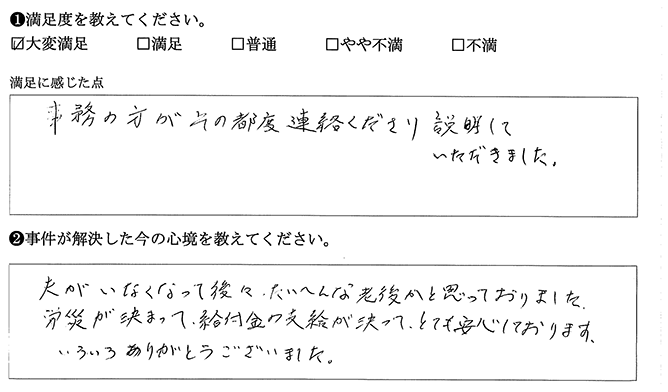 ❶満足度を教えてください。
☑大変満足 □満足 □普通 □やや不満 □不満
満足に感じた点
事務の方がその都度連絡くださり 説明して
いただきました。
❷事件が解決した今の心境を教えてください。
夫がいなくなって後々、たいへんな老後かと思っておりました。
労災が決まって、給付金の支給が決って、とても安心しております。
いろいろありがとうございました。